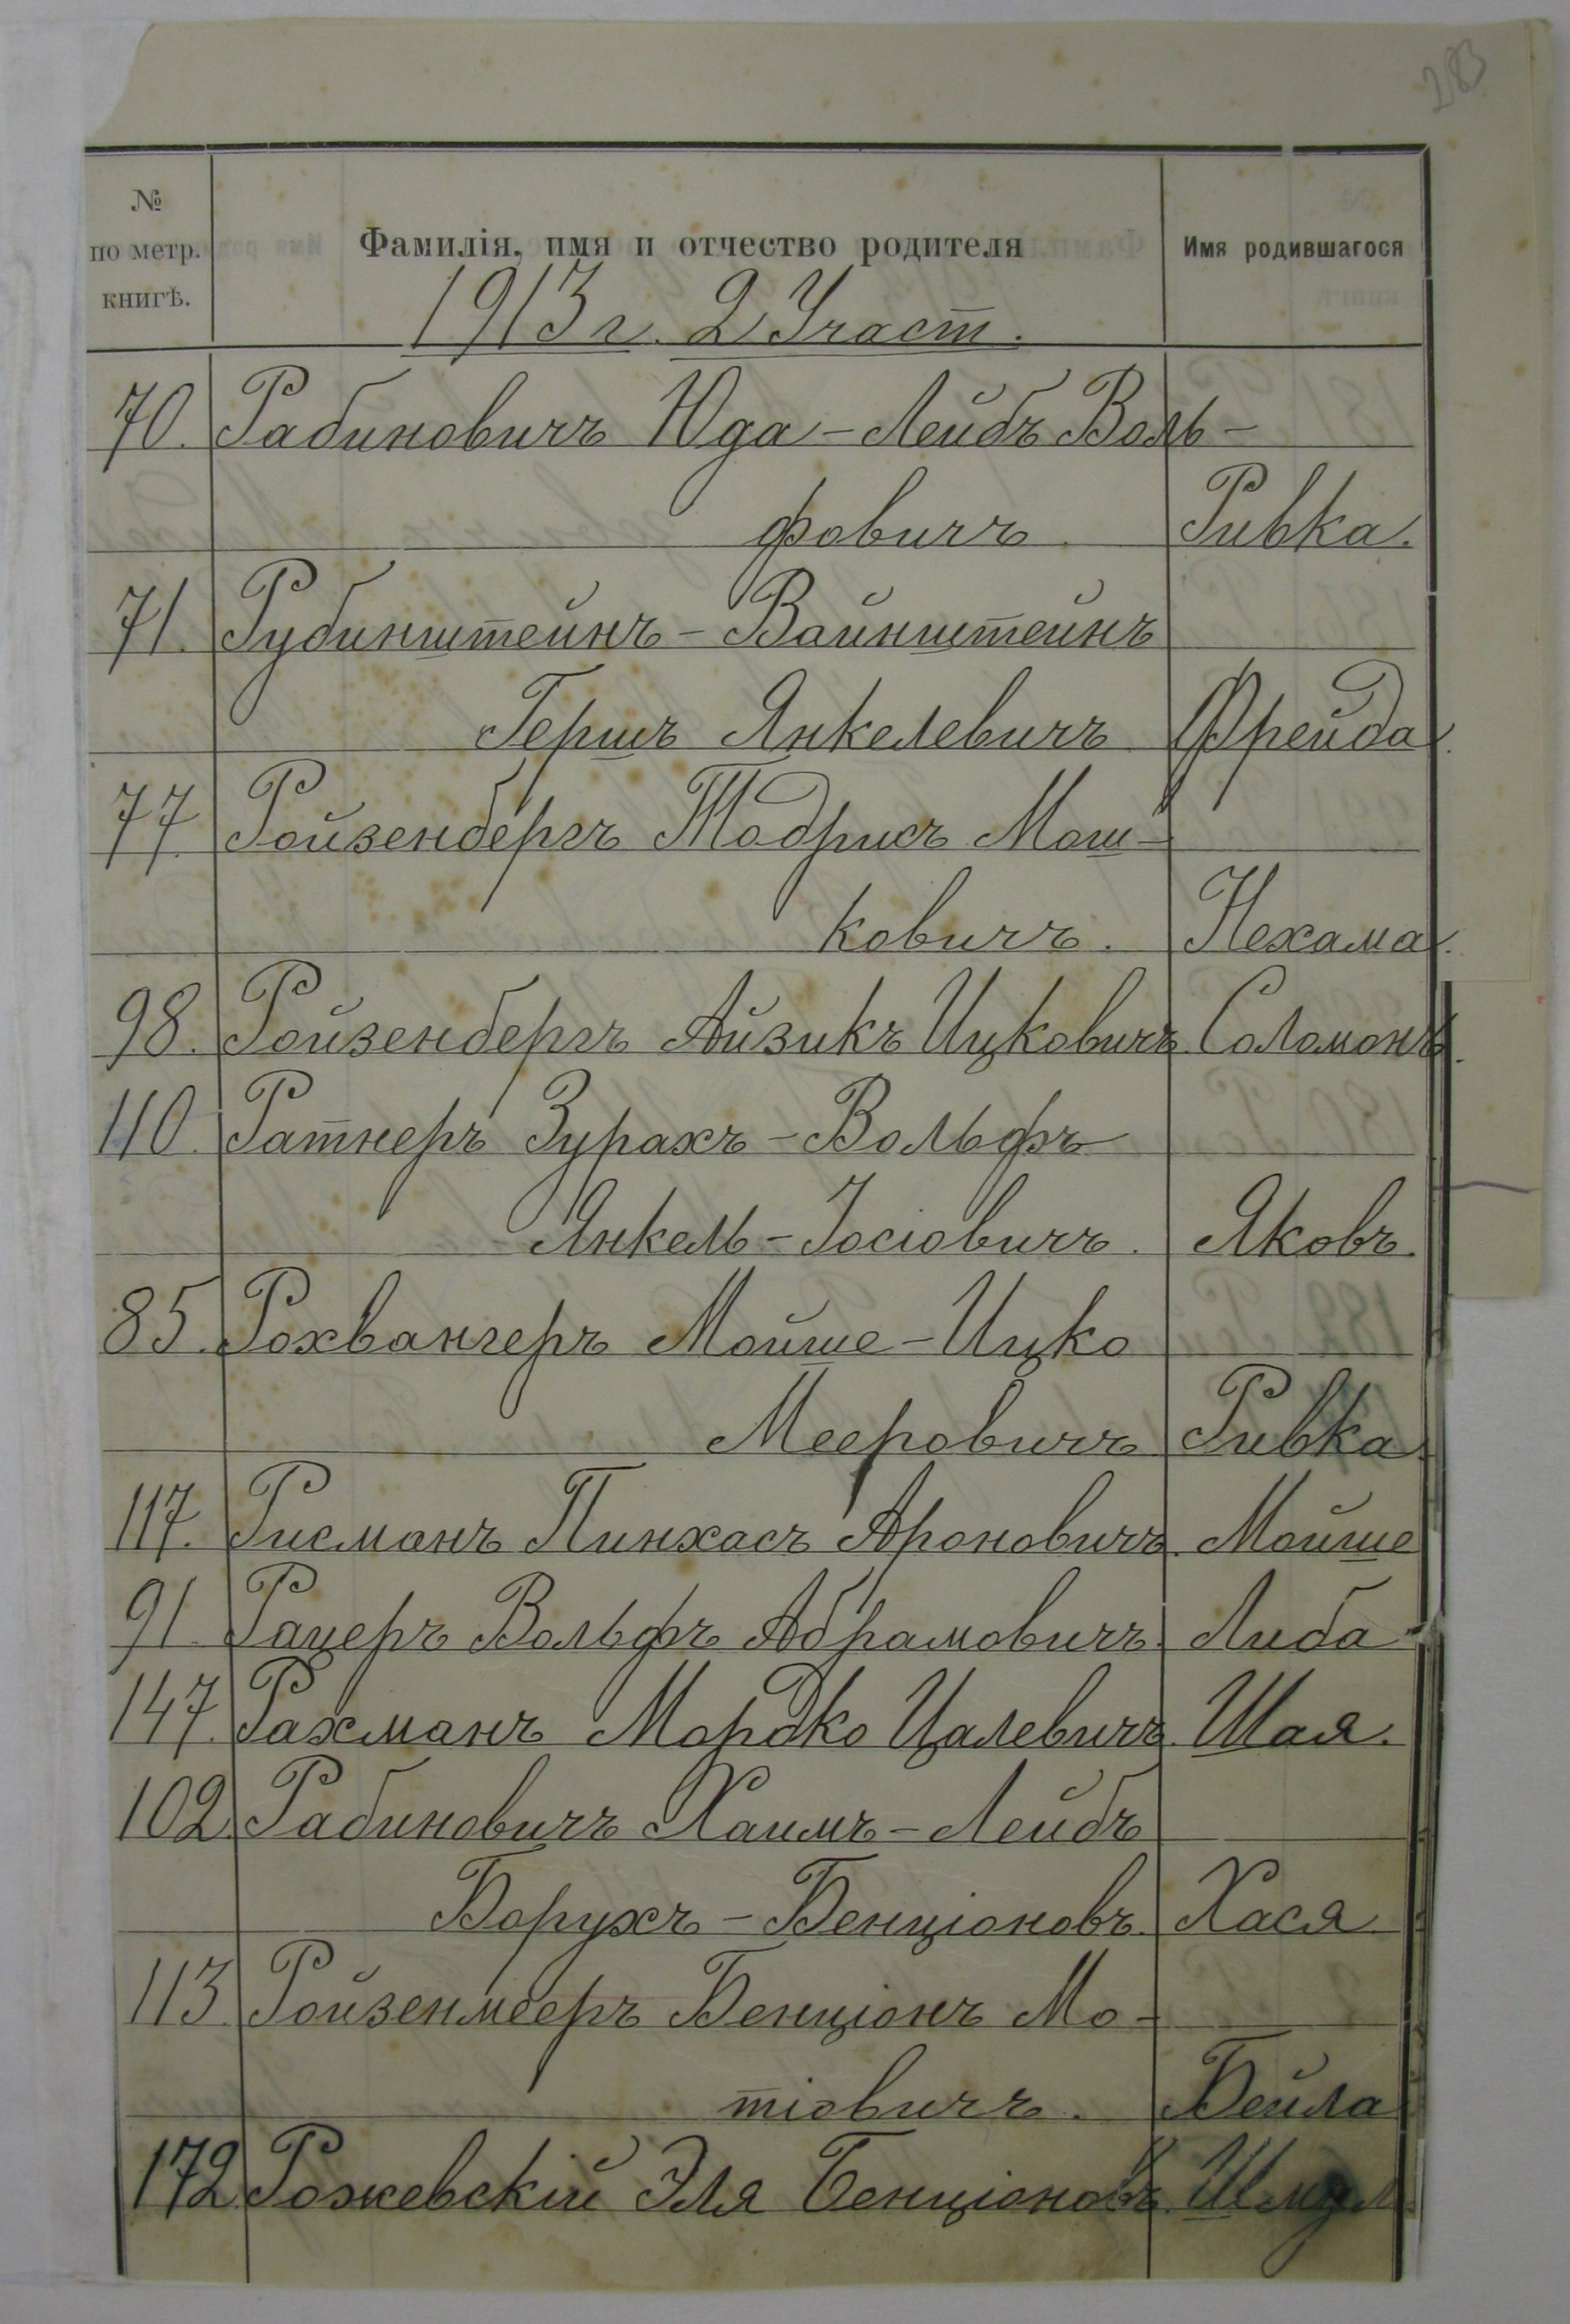 283
№ по метр. книгѣ.
Фамилія, имя и отчество родителя
Имя родившагося
1913 г. 2 Участ.
70. Рабиновичъ Юда-Лейбъ Воль-
фовичъ. Ривка.
71. Рубинштейнъ-Вайнштейнъ
Гершъ Янкелевичъ Фрейда.
77. Ройзенбергъ Тодрисъ Мош-
ковичъ. Нехама.
98. Ройзенбергъ Айзикъ Ицковичъ. Соломонъ.
110. Ратнеръ Зурахъ-Вольфъ
Янкель-Іосіовичъ. Яковъ.
85. Рохвангеръ Мойше-Ицко
Мееровичъ Ривка.
117. Рисманъ Пинхасъ Ароновичъ. Мойше
91. Рацеръ Вольфъ Абрамовичъ. Либа
147. Рахманъ Мордко Цалевичъ. Шая.
102. Рабиновичъ Хаимъ-Лейбъ
Борухъ-Бенціоновъ. Хася
113. Ройзенмееръ Бенціонъ Мо-
тіовичъ. Бейла
172 Рожевскій Эля Бенціоновъ.